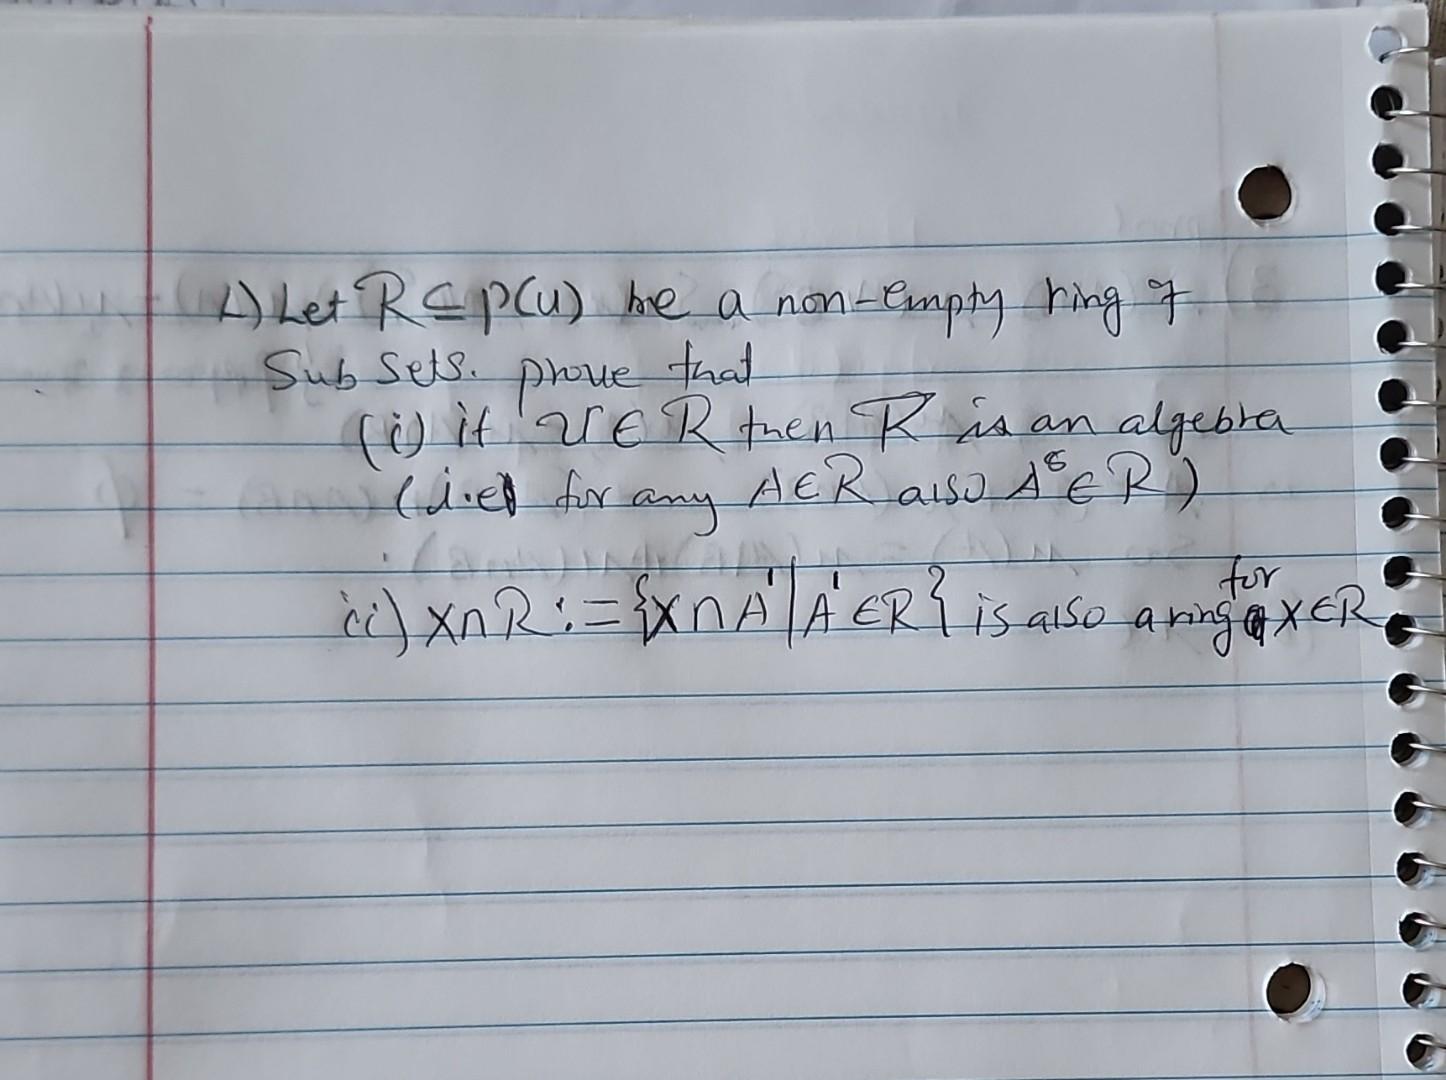 1) Let R ⊆ p(u) be a non-empty ring of
Sub sets. prove that
(i) if U ∈ R then R is an algebra
(i.e for any A ∈ R also Aᶜ ∈ R)
ii) X∩R := {X∩A' | A' ∈ R} is also a ring for X ∈ R